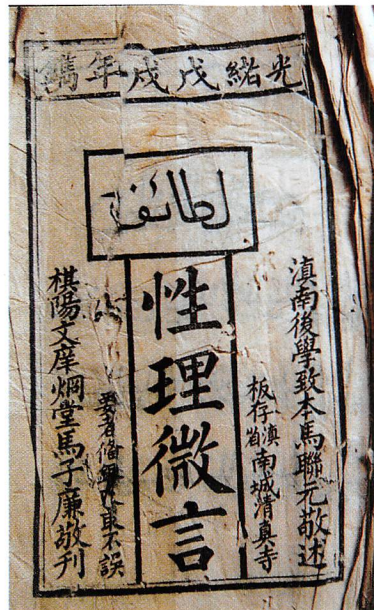 光緒戊戌年鐫
لطائف
滇南後學致本馬聯元敬述
板存滇省南城清真寺
性理微言
要者備銀取不誤
棋陽文庠烱堂馬子廉敬刊